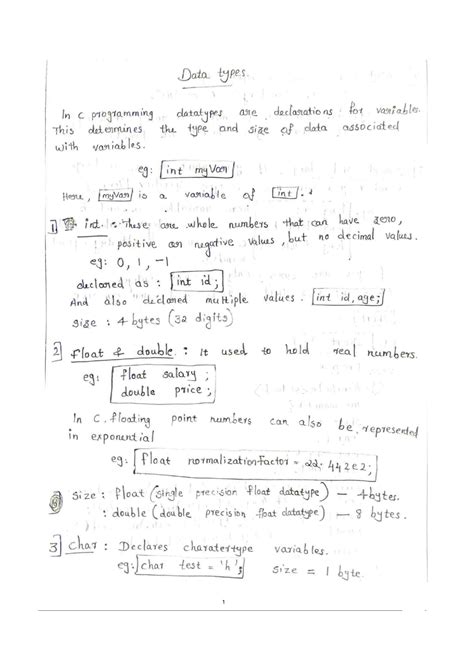 Data types.
In C programming, datatypes are declarations for variables.
This determines the type and size of data associated
with variables.
eg: int myVar
Here, myVar is a variable of int.
1 int : These are whole numbers that can have zero,
positive or negative values, but no decimal values.
eg: 0, 1, -1
declared as : int id;
And also declared multiple values. int id, age;
size : 4 bytes (32 digits)
2 float & double : It used to hold real numbers.
eg: float salary;
double price;
In C, floating point numbers can also be represented
in exponential
eg: float normalizationFactor = 22.442e2;
size : float (single precision float datatype) — 4bytes.
: double (double precision float datatype) — 8 bytes.
3 char : Declares charatertype variables.
eg: char test = 'h'; size = 1 byte.
1